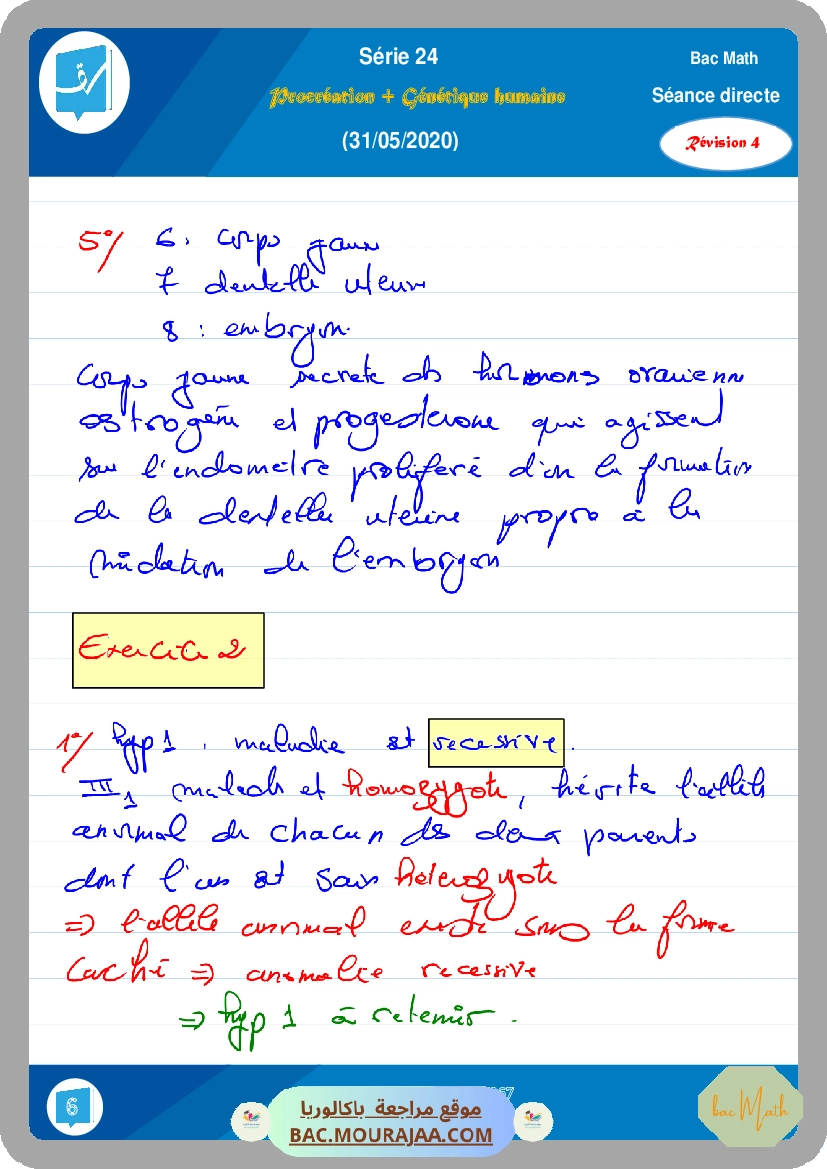 Série 24
Bac Math
Procréation + Génétique humaine
Séance directe
(31/05/2020)
Révision 4
5°/ 6. corps jaune
7 dentelle uterine
8 : embryon.
Corps jaune secrete des hormones ovarienne
oestrogène et progesterone qui agissent
sur l'endomètre proliferé d'on la formation
de la dentelle uterine propre à la
nidation de l'embryon
Exercice 2
1°/ hyp 1 : maladie est recessive.
III1 malade et homozygote, hérite l'allèle
anormal de chacun des deux parents
dont l'un est sain heterozygote
⇒ l'allele anormal existe sous la forme
caché ⇒ anomalie recessive
⇒ hyp 1 à retenir.
6
موقع مراجعة باكالوريا
BAC.MOURAJAA.COM
bac Math